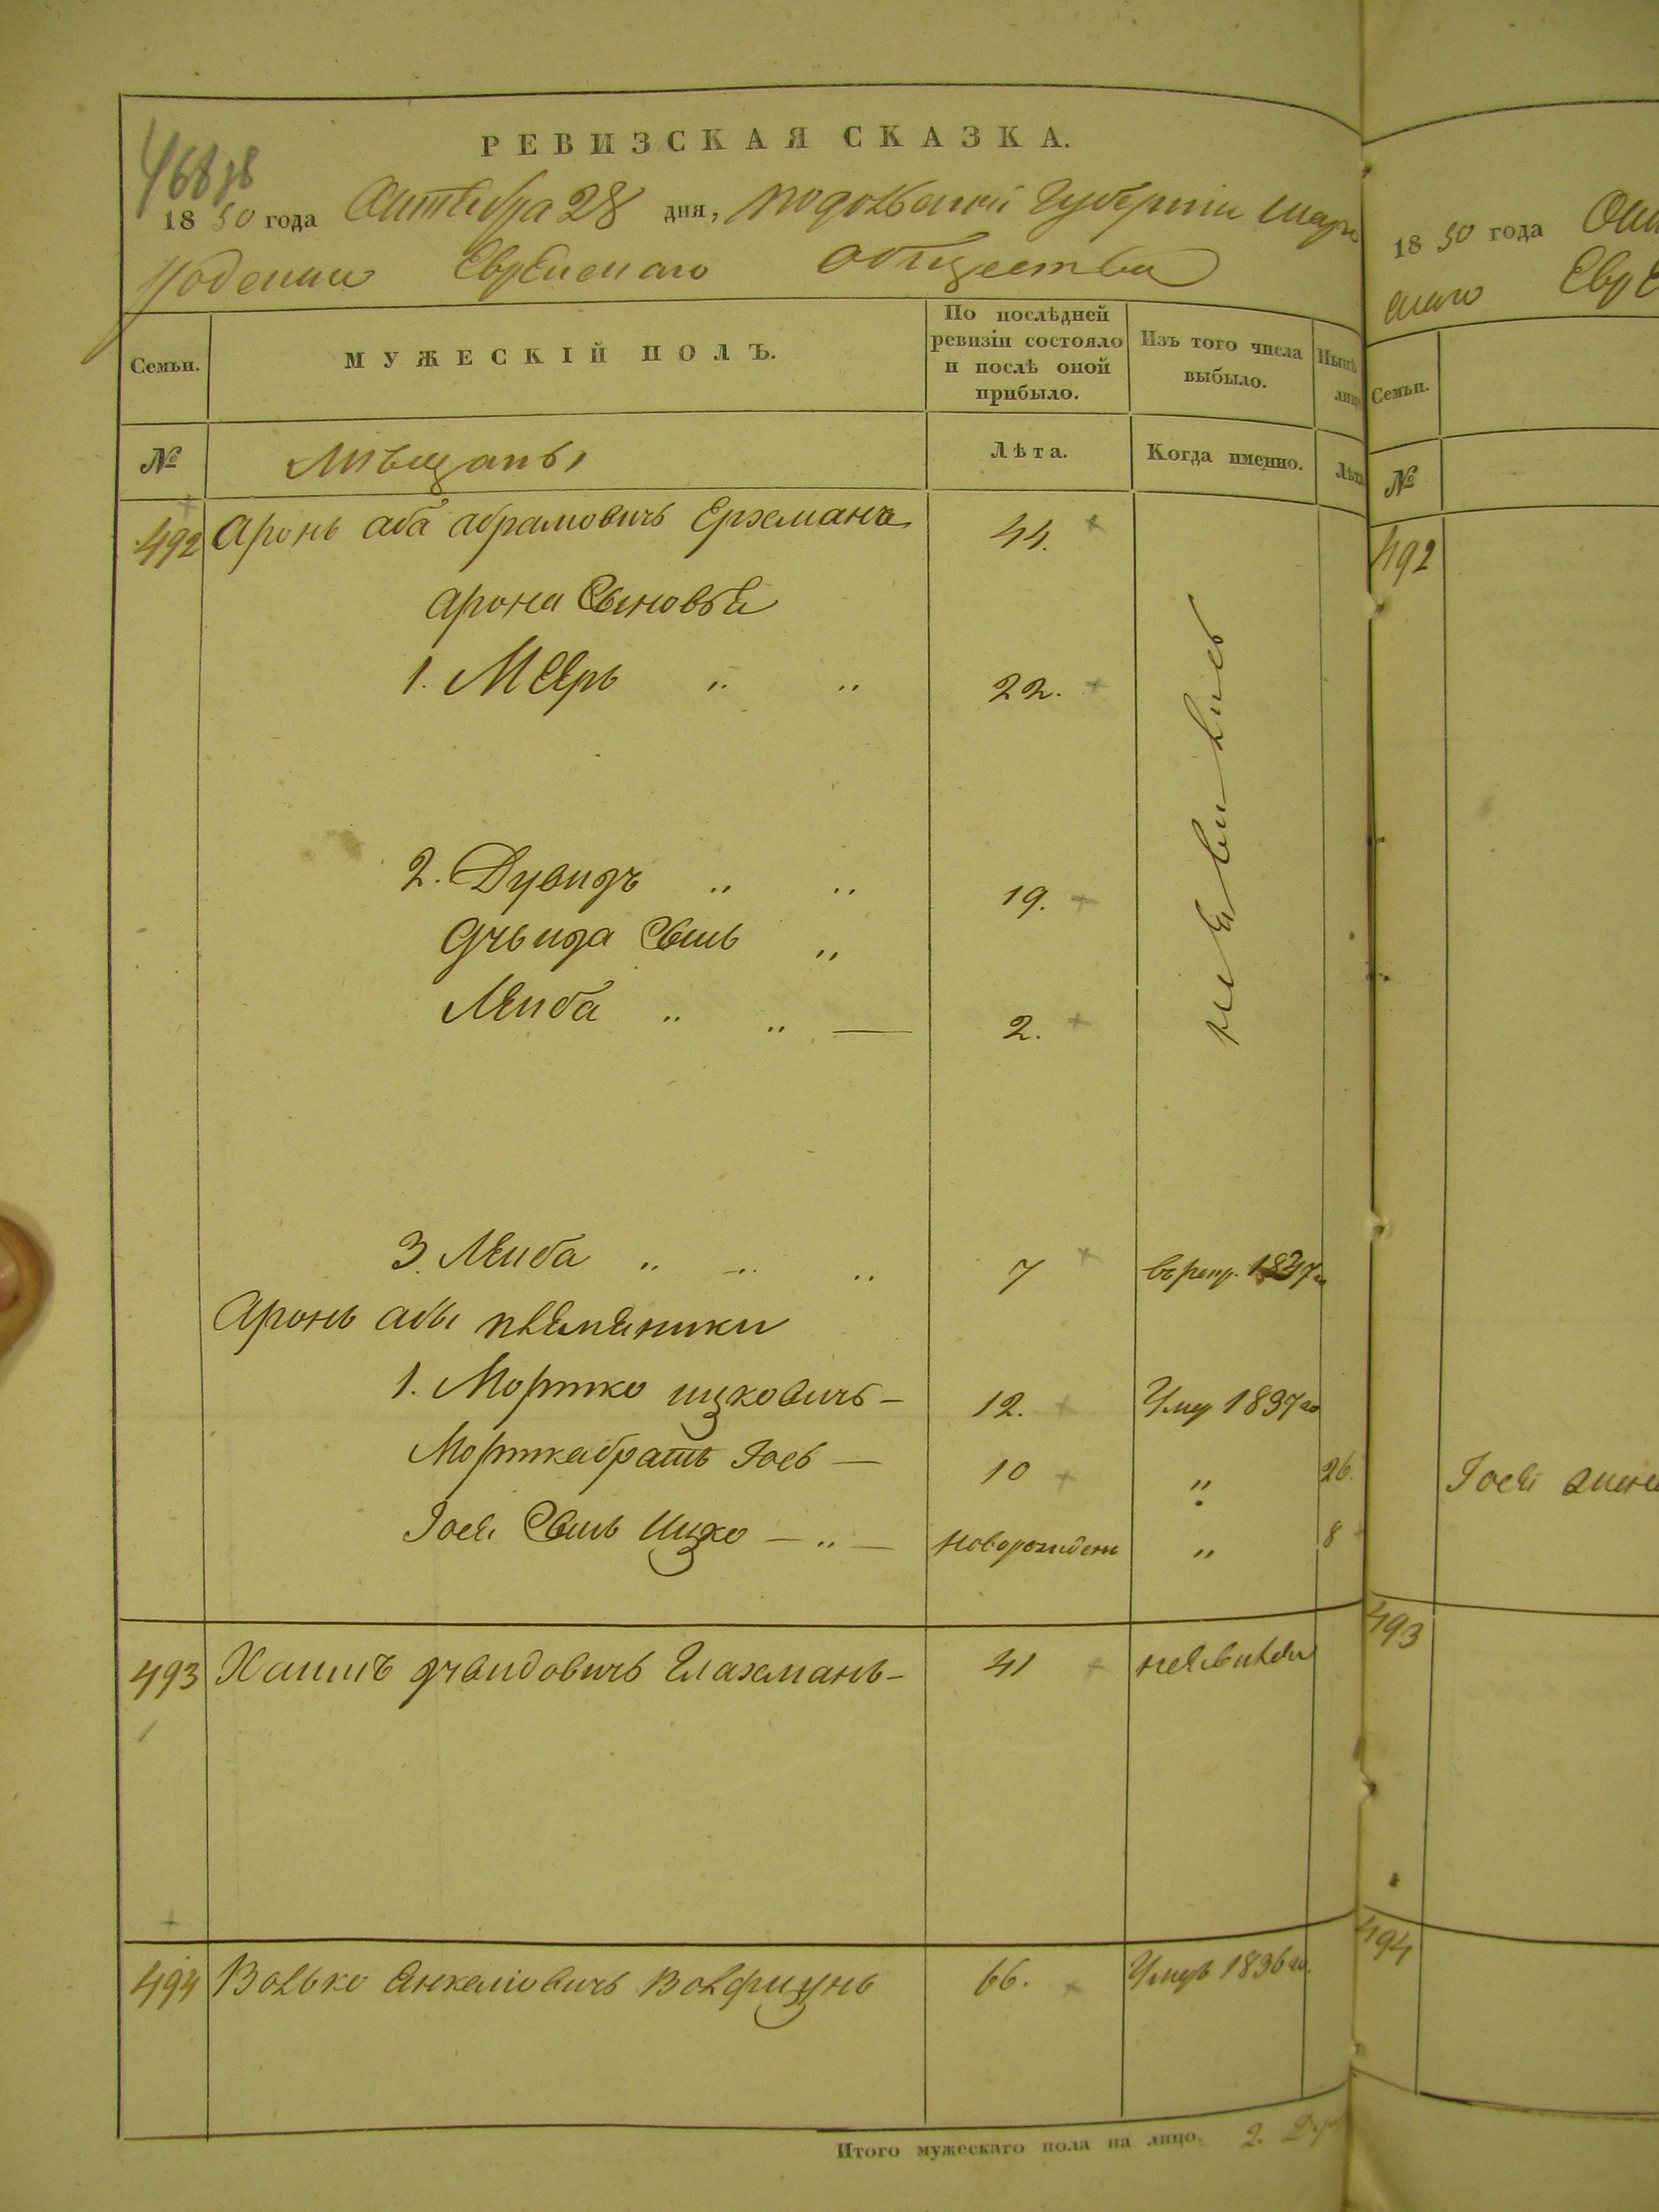 РЕВИЗСКАЯ СКАЗКА.
1850 года Октября 28 дня, Подольской Губернии Шарго
родскаго Еврейскаго общества
Семьи.
МУЖЕСКІЙ ПОЛЪ.
По послѣдней ревизіи состояло и послѣ оной прибыло.
Изъ того числа выбыло.
Нынѣ
№ Мѣщаны
Лѣта.
Когда именно.
Лѣта
492 Аронъ Аба Абрамовичъ Ерхманъ 44.
Арона Сыновья
1. Мееръ „ „ 22.
неявились
2. Дувидъ „ „ 19.
Дувида Сынъ „
Лейба „ „ — 2.
3. Лейба „ „ „ 7 въ рекр. 1837
Аронъ Абы племяники
1. Мортко Ицковичъ — 12. Умер 1837го
Мортка братъ Іось — 10 „ 26.
Іося Сынъ Ицко — „ — новорожден „ 8
493 Хаимъ Дувидовичъ Глахманъ — 41 неявился
494 Волько Янкелiовичъ Волфизунъ 66. Умеръ 1836го.
Итого мужескаго пола на лицо. 2.
18 50 года
Семьи.
№
492
Іося
493
494